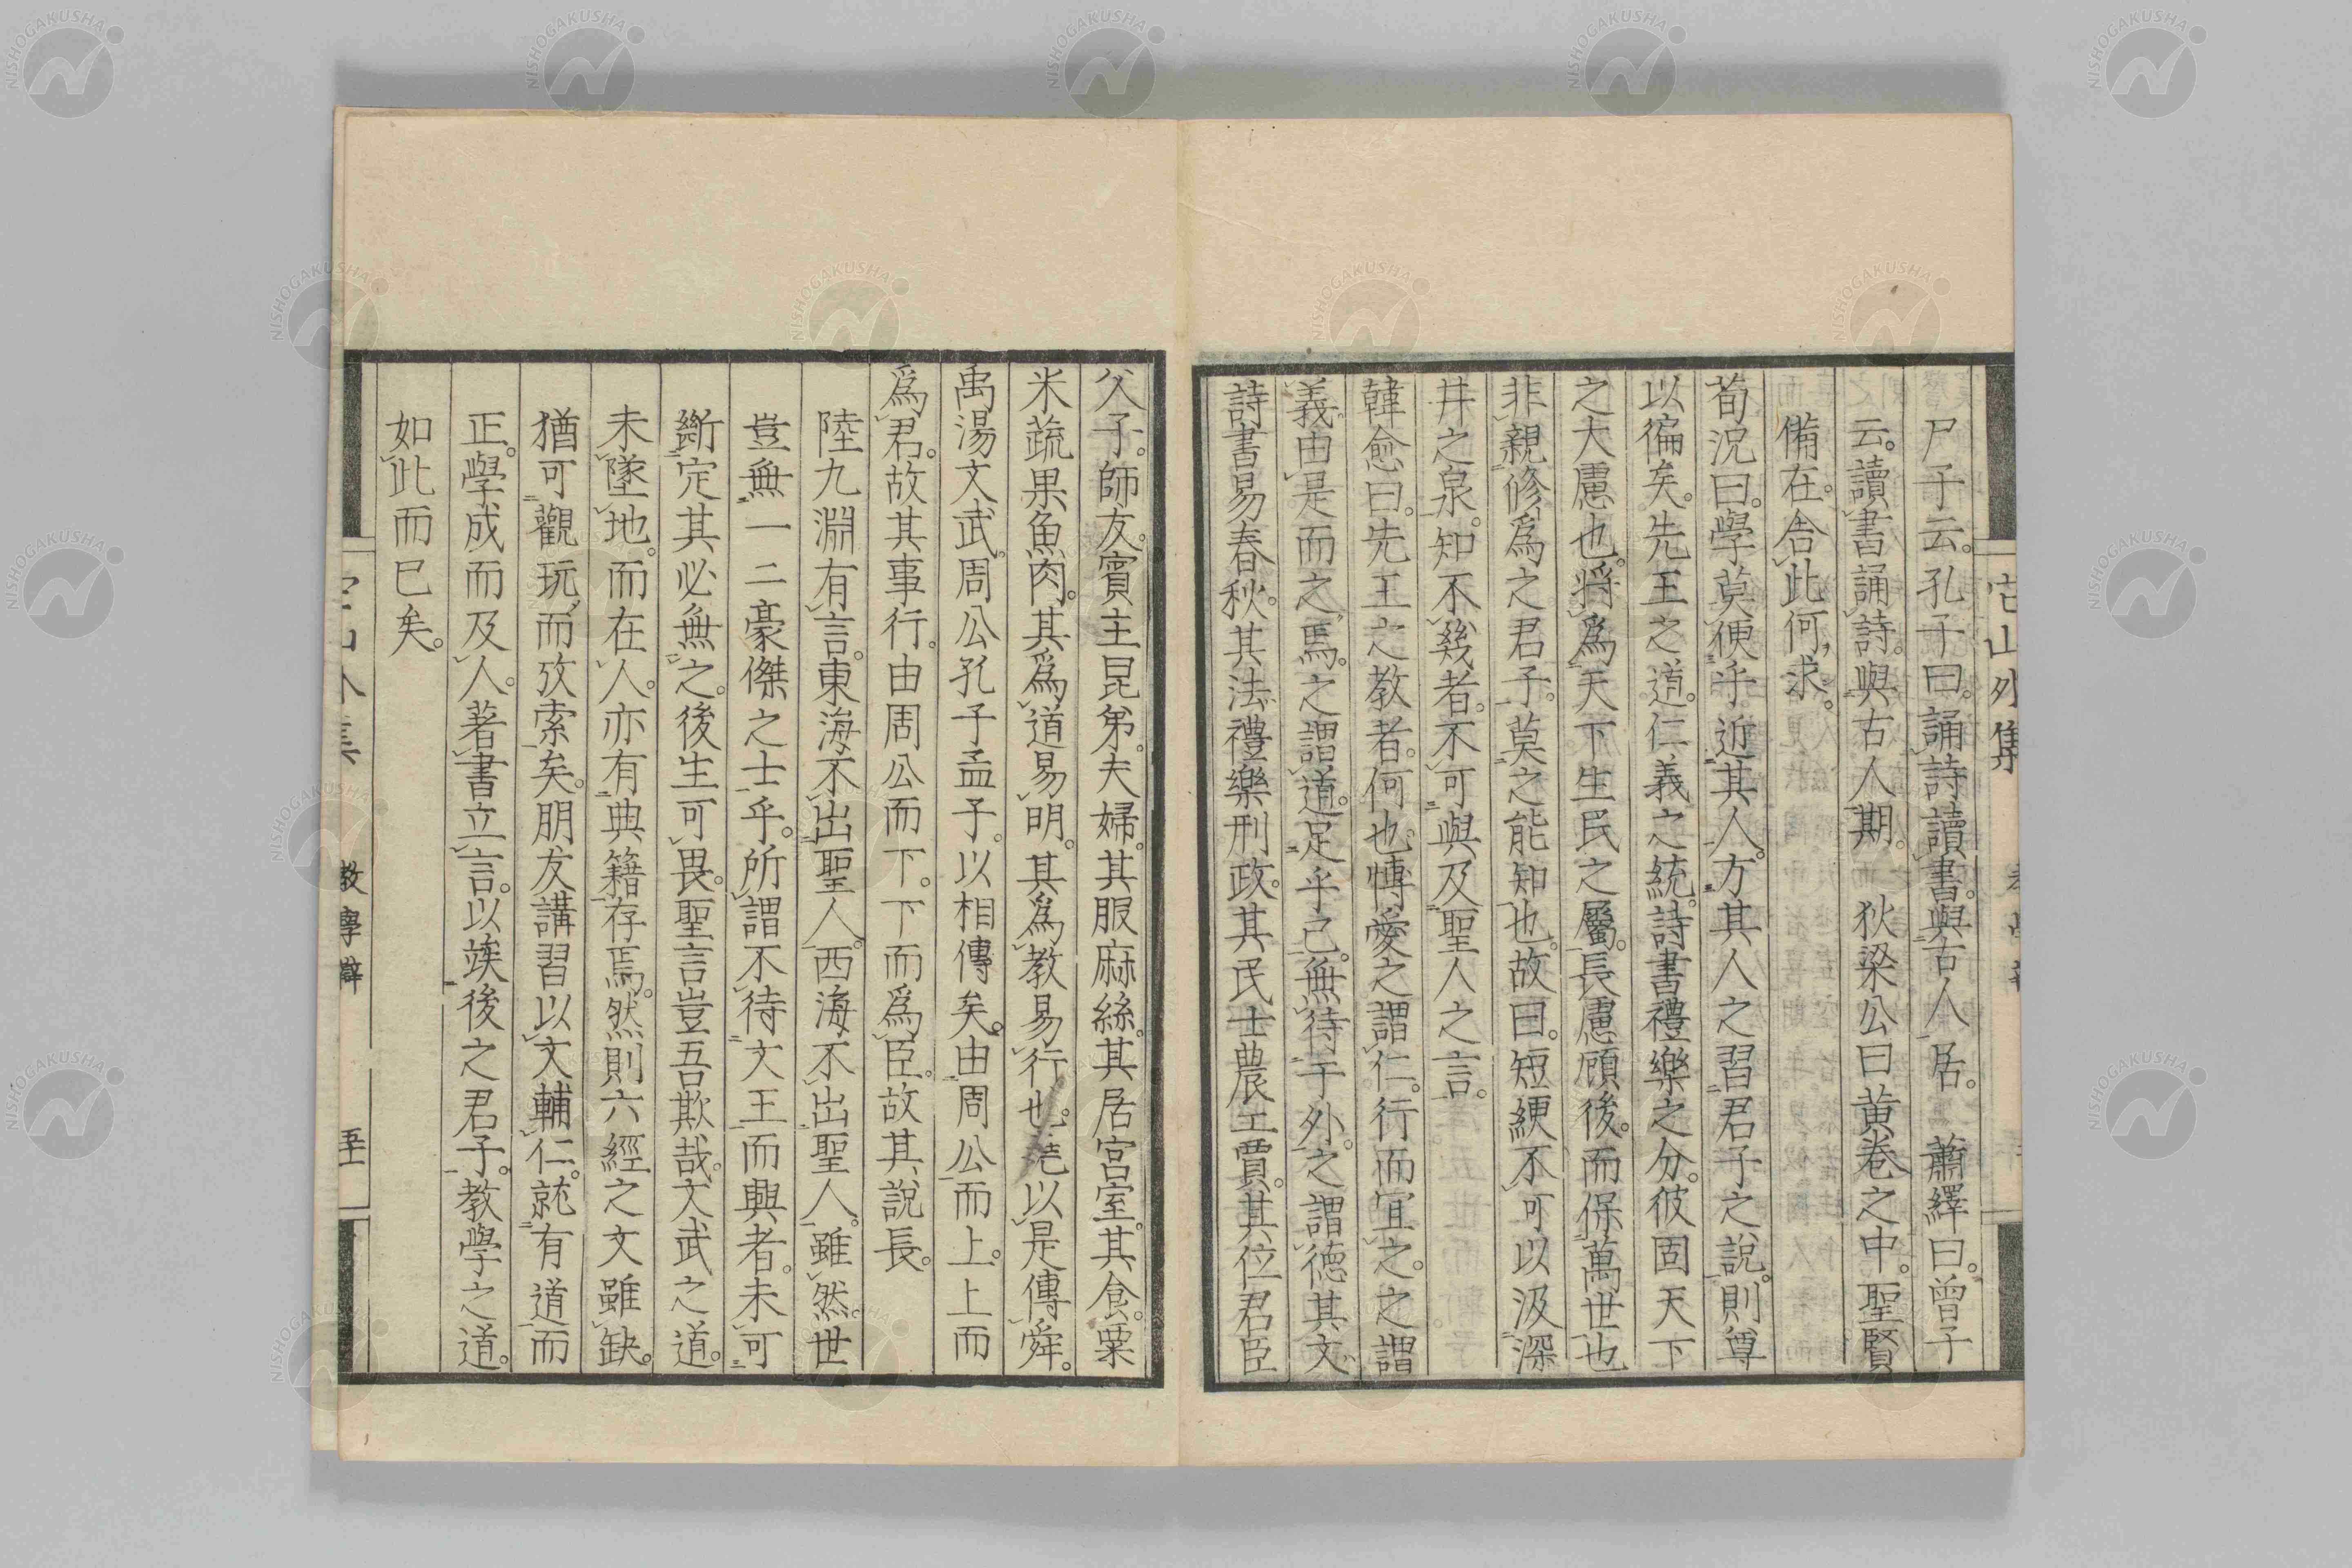 尸子云。孔子曰。誦詩讀書。與古人居。　蕭繹曰。曾子
云。讀書誦詩。與古人期。　狄梁公曰黄卷之中。聖賢
備在。舍此何求。
荀況曰。學莫便乎近其人。方其人之習君子之説。則尊
以徧矣。先王之道。仁義之統。詩書禮樂之分。彼固天下
之大慮也。將爲天下生民之屬。長慮顧後。而保萬世也
非親修爲之君子。莫之能知也。故曰。短綆不可以汲深
井之泉。知不幾者。不可與及聖人之言。
韓愈曰。先王之教者。何也。博愛之謂仁。行而宜之。之謂
義。由是而之焉。之謂道。足乎己。無待于外。之謂德。其文
詩書易春秋。其法禮樂刑政。其民士農工賈。其位君臣
父子。師友。賓主。昆弟。夫婦。其服麻絲。其居宮室。其食。粟
米蔬果魚肉。其爲道易明。其爲教易行也。堯以是傳舜。
禹湯文武。周公孔子孟子。以相傳矣。由周公而上。上而
爲君。故其事行。由周公而下。下而爲臣。故其説長。
陸九淵有言。東海不出聖人。西海不出聖人。雖然。世
豈無一二豪傑之士乎。所謂不待文王而興者。未可
斷定其必無之。後生可畏。聖言豈吾欺哉。文武之道。
未墜地。而在人。亦有典籍存焉。然則六經之文雖缺。
猶可觀玩而攷索矣。朋友講習以文輔仁。就有道而
正。學成而及人。著書立言。以竢後之君子。教學之道。
如此而已矣。
山外集
教學辯
五